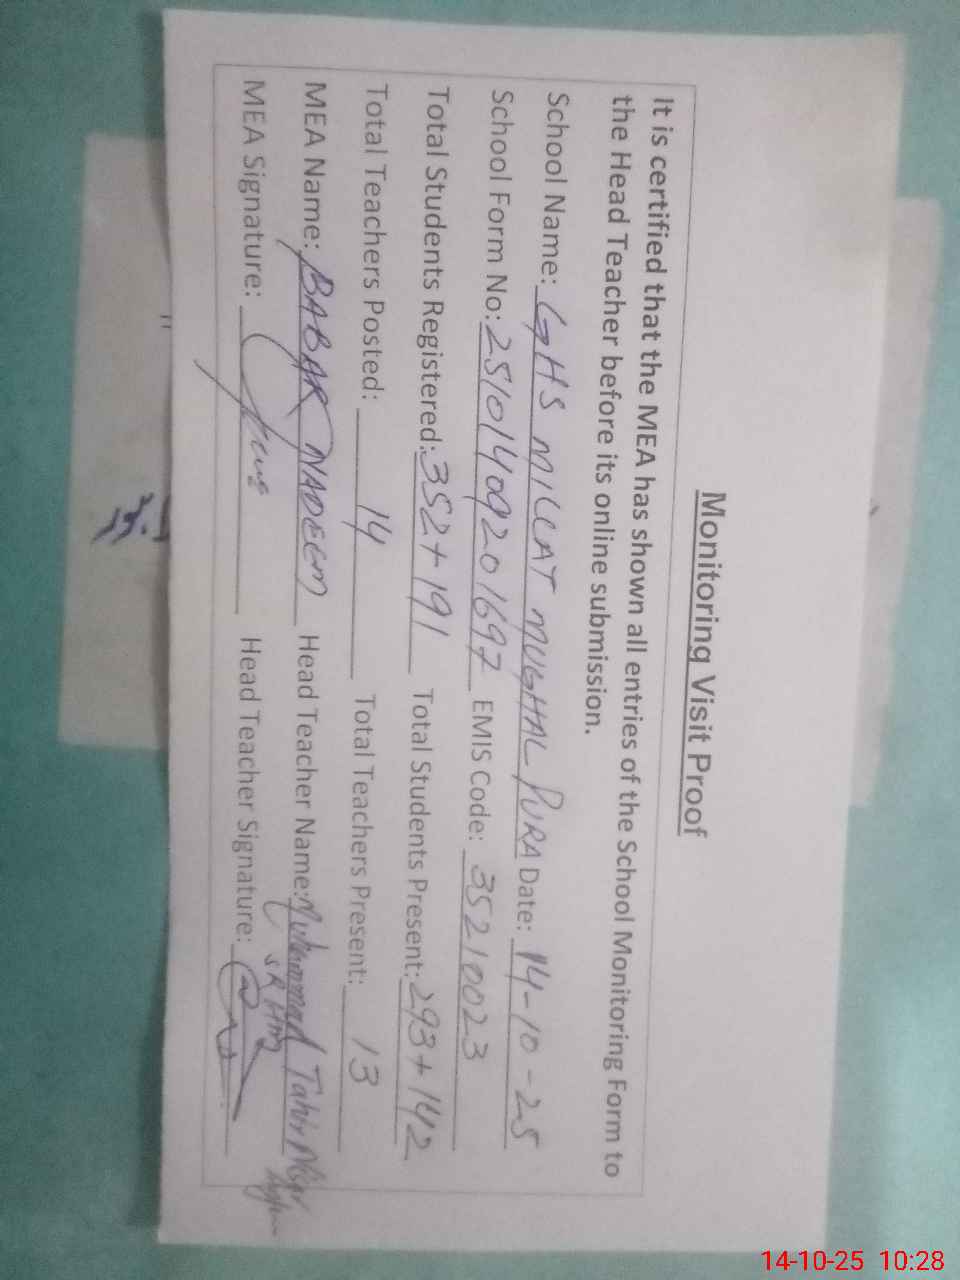 Monitoring Visit Proof
It is certified that the MEA has shown all entries of the School Monitoring Form to
the Head Teacher before its online submission.
School Name: GHS MILLAT MUGHAL PURA Date: 14-10-25
School Form No: 25101409201697 EMIS Code: 35210023
Total Students Registered: 352+191 Total Students Present: 293+142
Total Teachers Posted: 14 Total Teachers Present: 13
MEA Name: BABAR NADEEM Head Teacher Name: Muhammad Tahir
SR HM
MEA Signature: Head Teacher Signature:
14-10-25 10:28